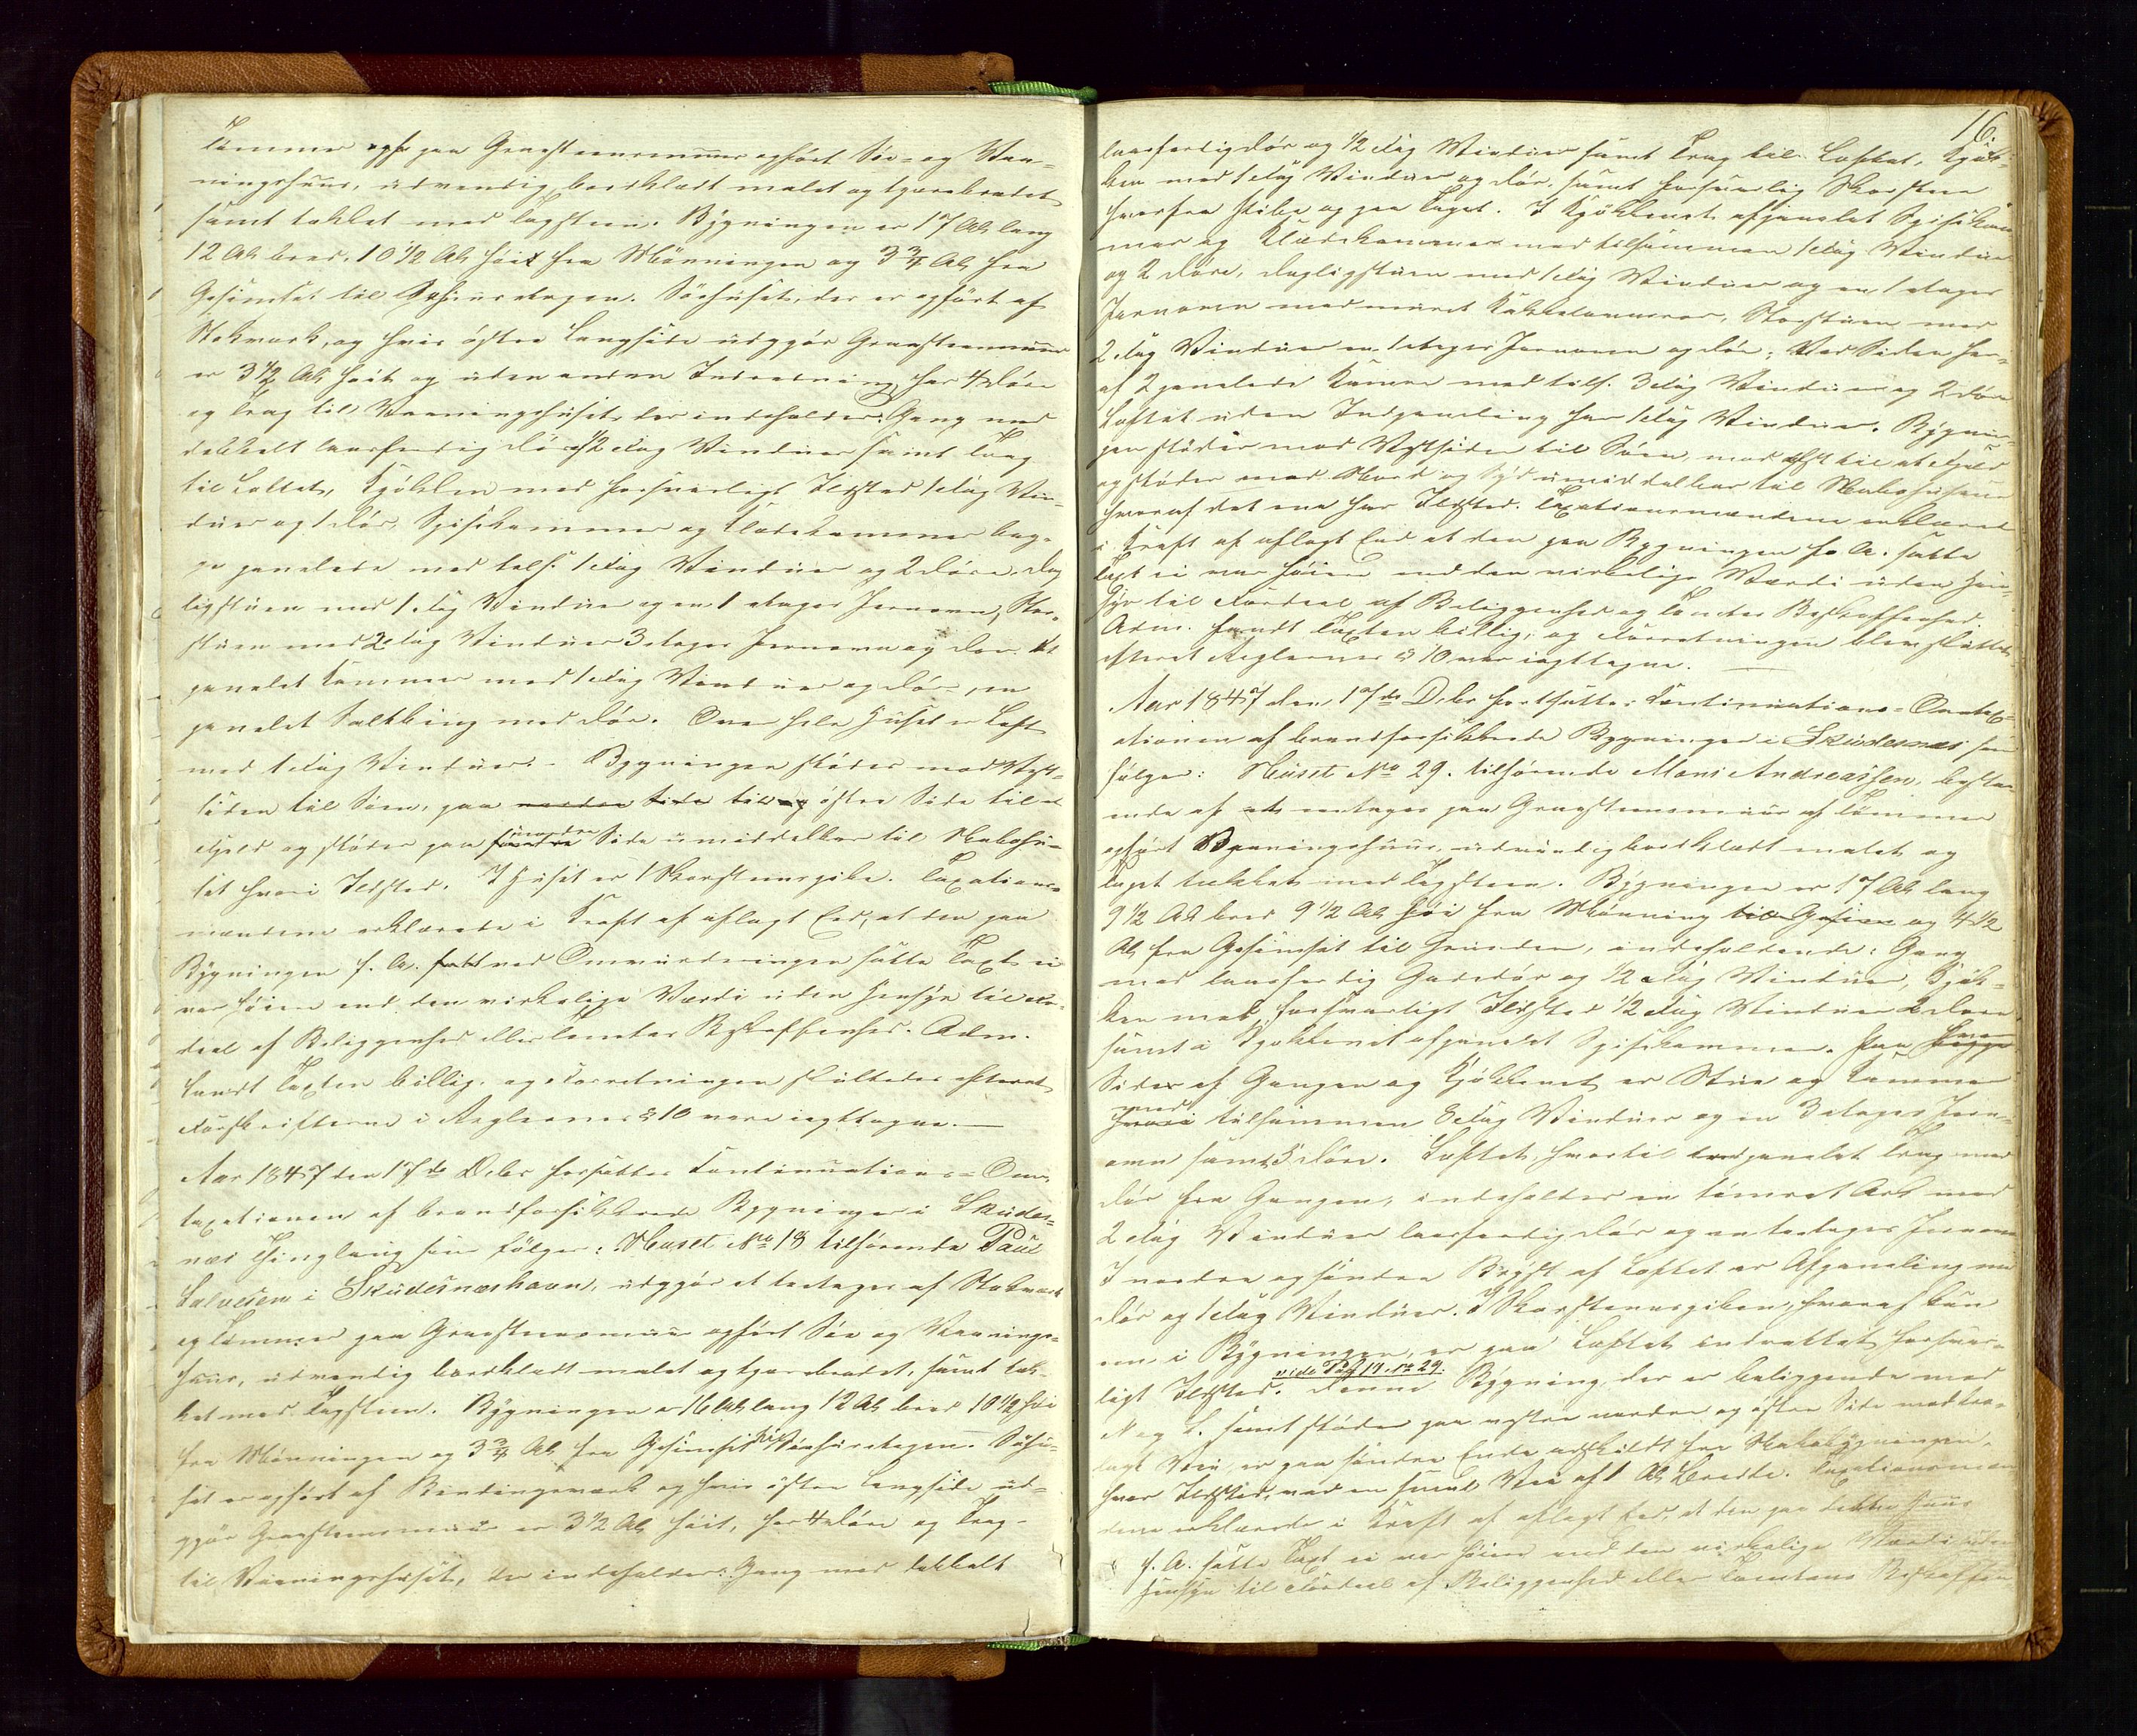 Tømmer opf paa Graasteensmuur opført Sø- og Vaa-
ningshuus, udvendig bordklædt malet og tjærebredet
samt tækket med Tagsteen. Bygningen er 17 Al lang
12 Al bred, 10 1/2 Al høit fra Mønningen og 3 3/4 Al fra
Gesimset til Søhuustagen. Søhuset, der er opført af
Stokværk, og hvis østre Langside udgjør Graasteensmuur
er 3 1/2 Al høit og uden anden Indredning har 4 Døre
og Trap til Vaaningshuset, der indeholder: Gang med
dobbelt laasferdig Dør og 1/2 Fag Vinduer samt Trap
til Loftet, Kjøkken med forsvarligt Ildsted 1 Fag Vin-
duer og 1 Dør, Spisekammer og Klædekammer beg-
ge panelede med tils. 1 Fag Vinduer og 2 Døre, Dag-
ligstuen med 1 Fag Vinduer og en 1 etages Jernovn, Stor-
stuen med 2 Fag Vinduer 3 etages Jernovn og Dør. Et
panelet Kammer med 1 Fag Vinduer og Dør, en
panelet Saltbing med Dør. Over hele Huset er Loft
med 1 Fag Vinduer. Bygningen støder mod Vest-
siden til Søen, paa nordre Side til og østre Side til et
Fjeld og støder paa søndre nordre Side umiddelbar til Nabohu-
set hvori Ildsted. I Huset er 1 Skorsteenspibe. Taxations-
mændene erklærede i Kraft af aflagt Eed, at den paa
Bygningen f. A. satt ved Omvurderingen satte Taxt ei
var høiere end den virkelige Værdi uden Hensyn til For-
deel af Beliggenhed eller Tomtes Beskaffenhed. Adm.
fandt Taxten billig, og Forretningen sluttedes efterat
Forskrifterne i Reglernes § 10 vare iagttagne.
Aar 1847 den 17de Debr fortsattes Continuations-Om-
taxationen af brandforsikkrede Bygninger i Skudes-
næs Thinglaug som følger: Huset No 18 tilhørende Paul
Salvesen i Skudesnæshavn, udgjør et toetages af Stokværk
og Tømmer paa Graasteensmuur opført Søe og Vaanings-
huus, udvendig bordklædt malet og tjærebredet, samt tæk-
ket med Tagsteen. Bygningen er 16 Al lang 12 Al bred 10 1/2 høi
fra Mønningen og 3 3/4 Al fra Gesimset til Søhuustagen. Søhu-
set er opført af Bindingsværk og hvis østre Langside ud-
gjør Graasteensmuur er 3 1/2 Al høit, har 4 Døre og Trap
til Vaaningshuset, der indeholder: Gang med dobbelt
16.
laasferdig Dør og 1/2 Fag Vinduer samt Trap til Loftet, Kjøk-
ken med 1 Fag Vinduer og Dør, samt forsvarlig Skorsteen
hvorfra Pibe og paa Taget. I Kjøkkenet afpanelet Spisekam
mer og Klædekammer med tilsammen 1 Fag Vinduer
og 2 Døre, Dagligstuen med 1 Fag Vinduer og en 1 etages
Jernovn med muret Kakkelovnsroer, Storstuen med
2 Fag Vinduer en 1 etages Jernovn og Dør; Ved Siden her-
af 2 panelede Kamre med tils. 3 Fag Vinduer og 2 Døre
Loftet uden Indpaneling har 1 Fag Vinduer. Bygnin-
gen støder mod Vestsiden til Søen, mod Øst til et Fjeld
og støder mod Nord og Syd umiddelbar til Nabohusene
hvoraf det ene har Ildsted. Taxationsmændene erklærede
i Kraft af aflagt Eed at den paa Bygningen f. A. satte
Taxt ei var høiere end den virkelige Værdi uden Hen-
syn til Fordeel af Beliggenhed og Tomtes Beskaffenhed.
Adm. fandt Taxten billig, og Forretningen blev sluttet
efterat Reglernes § 10 var iagttagne.
Aar 1847 den 17de Debr fortsattes Continuations-Omtax-
ationen af brandforsikkrede Bygninger i Skudesnæs som
følger: Huset No 29. tilhørende Mons Andreassen, bestaa-
ende af et eetages paa Graasteensmuur af Tømmer
opført Vaaningshuus, udvendig bordklædt malet og
Taget tækket med Tagsteen. Bygningen er 17 Al lang
9 1/2 Al bred 9 1/2 Al høi fra Mønning til Gesims og 4 1/2
Al fra Gesimset til Grunden, indeholdende: Gang
med laasferdig Gadedør og 1/2 Fag Vinduer, Kjøk-
ken med forsvarligt Ildsted 1/2 Fag Vinduer 2 Døre
samt i Kjøkkenet afpanelet Spisekammer. Paa begge hver
Sider af Gangen og Kjøkkenet er Stue og Kammer
hvori med tilsammen 8 Fag Vinduer og en 3 etages Jern-
ovn samt 3 Døre. Loftet, hvortil indpanelet Trap med
Dør fra Gangen, indeholder en tømret Ark med
2 Fag Vinduer laasferdig Dør og en toetages Jernovn
I nordre og søndre Bryst af Loftet er Afpaneling med
Dør og 1 Fag Vinduer. I Skorsteenspiben, hvoraf kun
een i Bygningen, er paa Loftet indrettet forsvar-
vide Pag 19. No 29.
ligt Ildsted. Denne Bygning der er beliggende med
N og S. samt støder paa vestre nordre og østre Side mod bro-
lagt Vei, er paa søndre Ende adskildt fra Nabobygningen,
hvor Ildsted, ved en smal Vei af 1 Al Bredde. Taxationsmæn
dene erklærede i Kraft af aflagt Eed at den paa dette Huus
f. A. satte Taxt ei var høiere end den virkelige Værdi uden
Hensyn til Fordeel af Beliggenhed eller Tomtens Beskaffen-